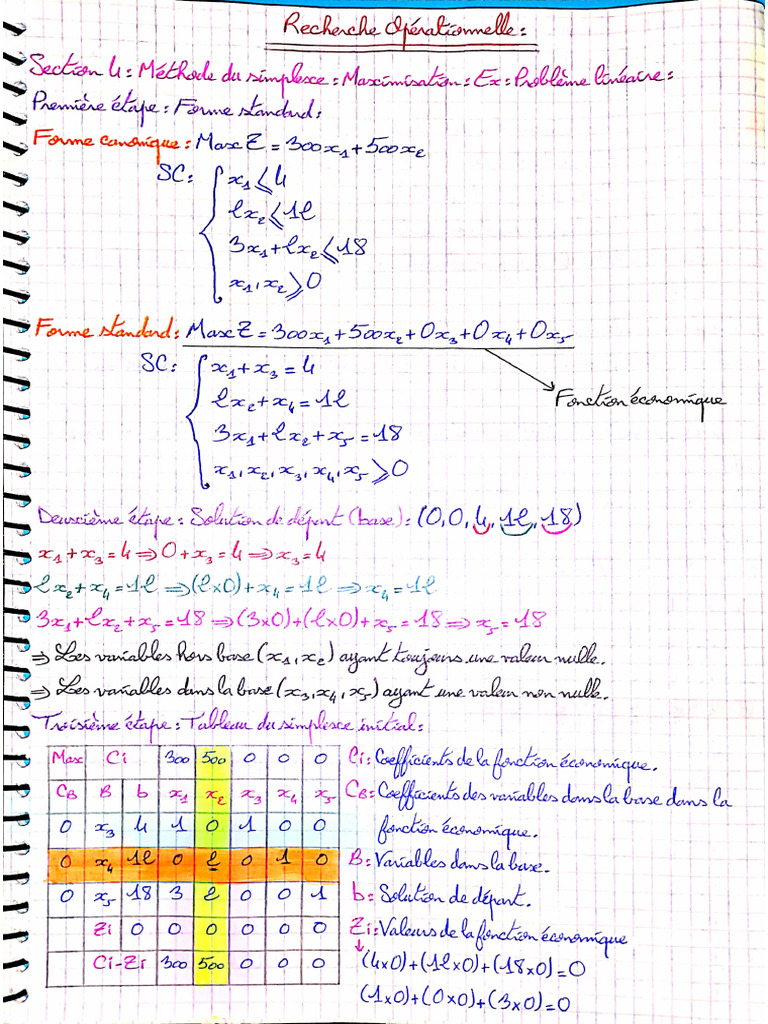 Recherche Opérationnelle :
Section 4 : Méthode du simplexe : Maximisation : Ex : Problème linéaire :
Première étape : Forme standard :
Forme canonique : Max Z = 300x₁ + 500x₂
SC : { x₁ ⩽ 4
2x₂ ⩽ 12
3x₁ + 2x₂ ⩽ 18
x₁, x₂ ⩾ 0
Forme standard : Max Z = 300x₁ + 500x₂ + 0x₃ + 0x₄ + 0x₅
SC : { x₁ + x₃ = 4
Fonction économique
2x₂ + x₄ = 12
3x₁ + 2x₂ + x₅ = 18
x₁, x₂, x₃, x₄, x₅ ⩾ 0
Deuxième étape : Solution de départ (base) : (0, 0, 4, 12, 18)
x₁ + x₃ = 4 ⇒ 0 + x₃ = 4 ⇒ x₃ = 4
2x₂ + x₄ = 12 ⇒ (2x0) + x₄ = 12 ⇒ x₄ = 12
3x₁ + 2x₂ + x₅ = 18 ⇒ (3x0) + (2x0) + x₅ = 18 ⇒ x₅ = 18
⇒ Les variables hors base (x₁, x₂) ayant toujours une valeur nulle.
⇒ Les variables dans la base (x₃, x₄, x₅) ayant une valeur non nulle.
Troisième étape : Tableau du simplexe initial :
Max Ci 300 500 0 0 0
CB B b x₁ x₂ x₃ x₄ x₅
0 x₃ 4 1 0 1 0 0
0 x₄ 12 0 2 0 1 0
0 x₅ 18 3 2 0 0 1
Zi 0 0 0 0 0 0
Ci-Zi 300 500 0 0 0
Ci : Coefficients de la fonction économique.
CB : Coefficients des variables dans la base dans la
fonction économique.
B : Variables dans la base.
b : Solution de départ.
Zi : Valeurs de la fonction économique
(4x0) + (12x0) + (18x0) = 0
(1x0) + (0x0) + (3x0) = 0